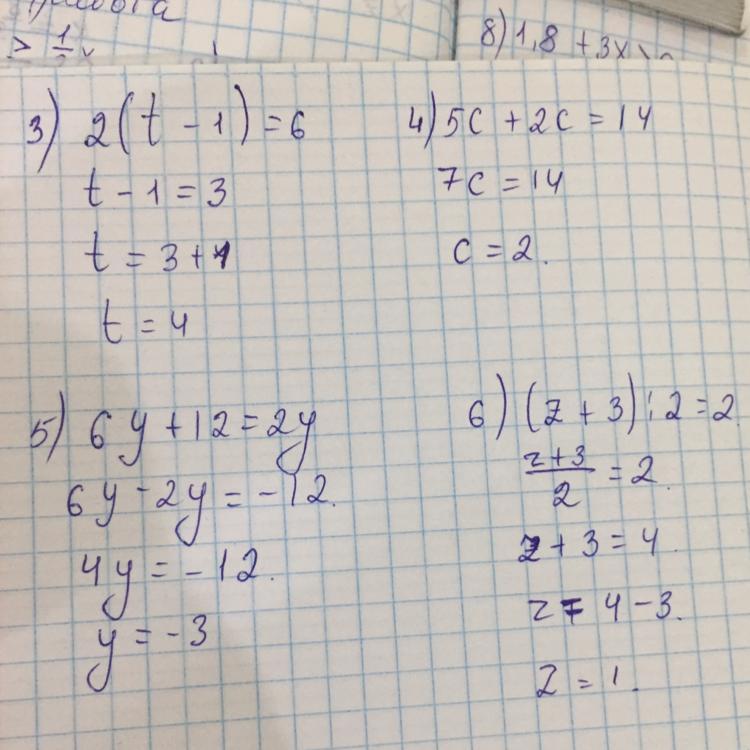 8) 1,8 + 3x
3) 2(t - 1) = 6
t - 1 = 3
t = 3 + 1
t = 4
4) 5c + 2c = 14
7c = 14
c = 2.
5) 6y + 12 = 2y
6y - 2y = -12.
4y = -12.
y = -3
6) (z + 3) : 2 = 2
z+3/2 = 2.
z + 3 = 4.
z = 4 - 3.
z = 1.